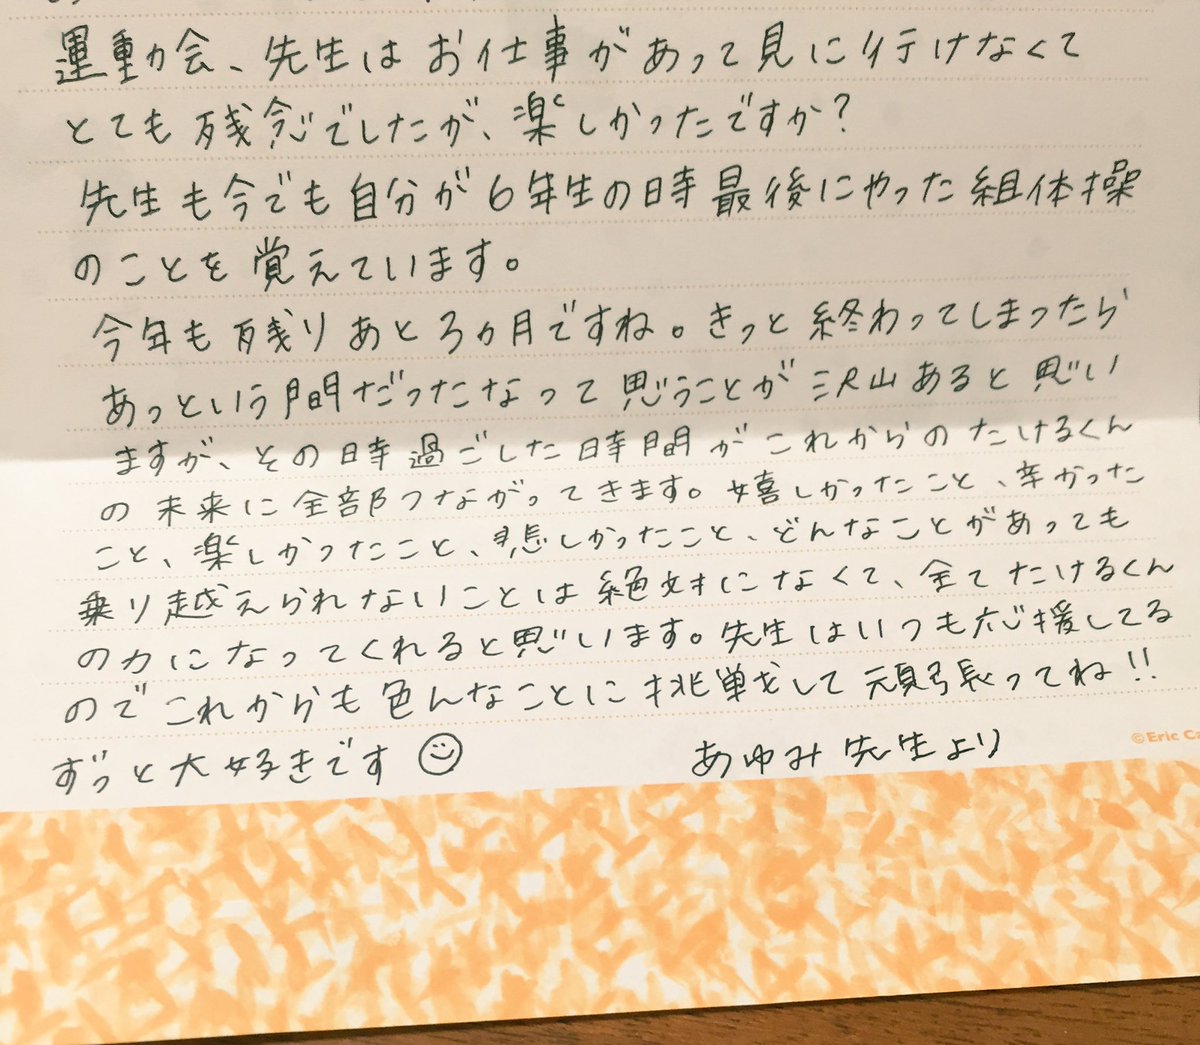 運動会、先生はお仕事があって見に行けなくて
とても残念でしたが、楽しかったですか?
先生も今でも自分が6年生の時最後にやった組体操
のことを覚えています。
今年も残りあと3ヵ月ですね。きっと終わってしまったら
あっという間だったなって思うことが沢山あると思い
ますが、その時過ごした時間がこれからのたけるくん
の未来に全部つながってきます。嬉しかったこと、辛かった
こと、楽しかったこと、悲しかったこと、どんなことがあっても
乗り越えられないことは絶対になくて、全てたけるくん
の力になってくれると思います。先生はいつも応援してる
のでこれからも色んなことに挑戦をして頑張ってね!!
ずっと大好きです
あゆみ先生より
©Eric Ca